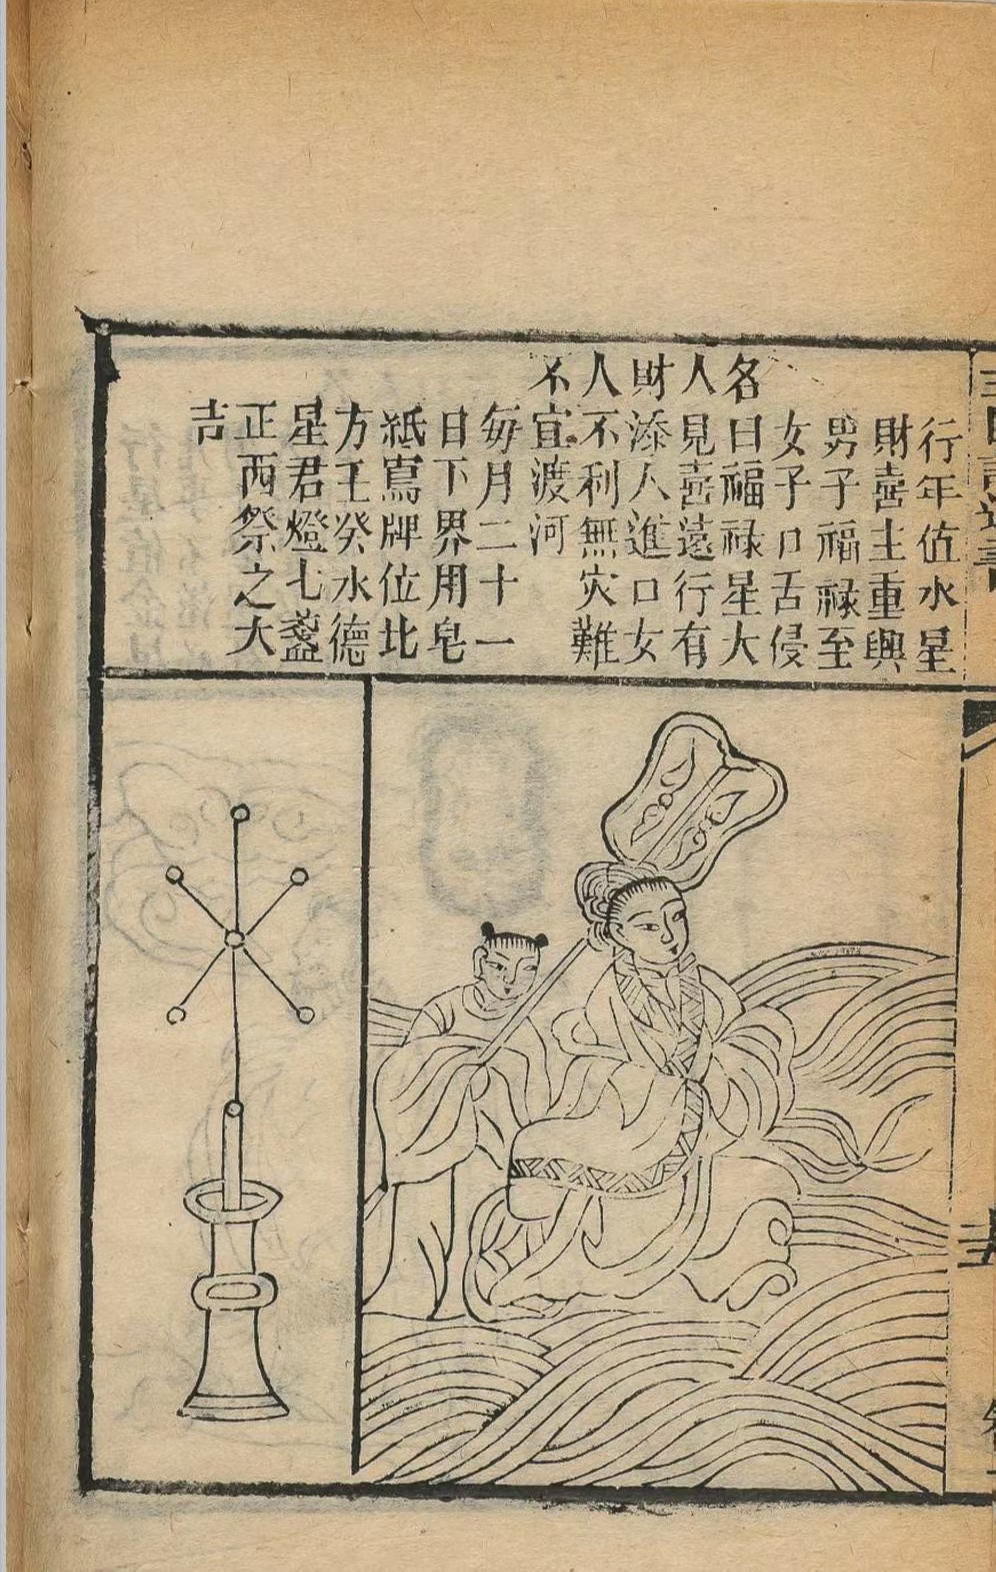 行年值水星
財喜主重興
男子福祿至
女子口舌侵
名曰福祿星大
人見喜遠行有
財添人進口女
人不利無灾難
不宜渡河
每月二十一
日下界用皂
紙寫牌位北
方壬癸水德
星君燈七盞
正西祭之大
吉